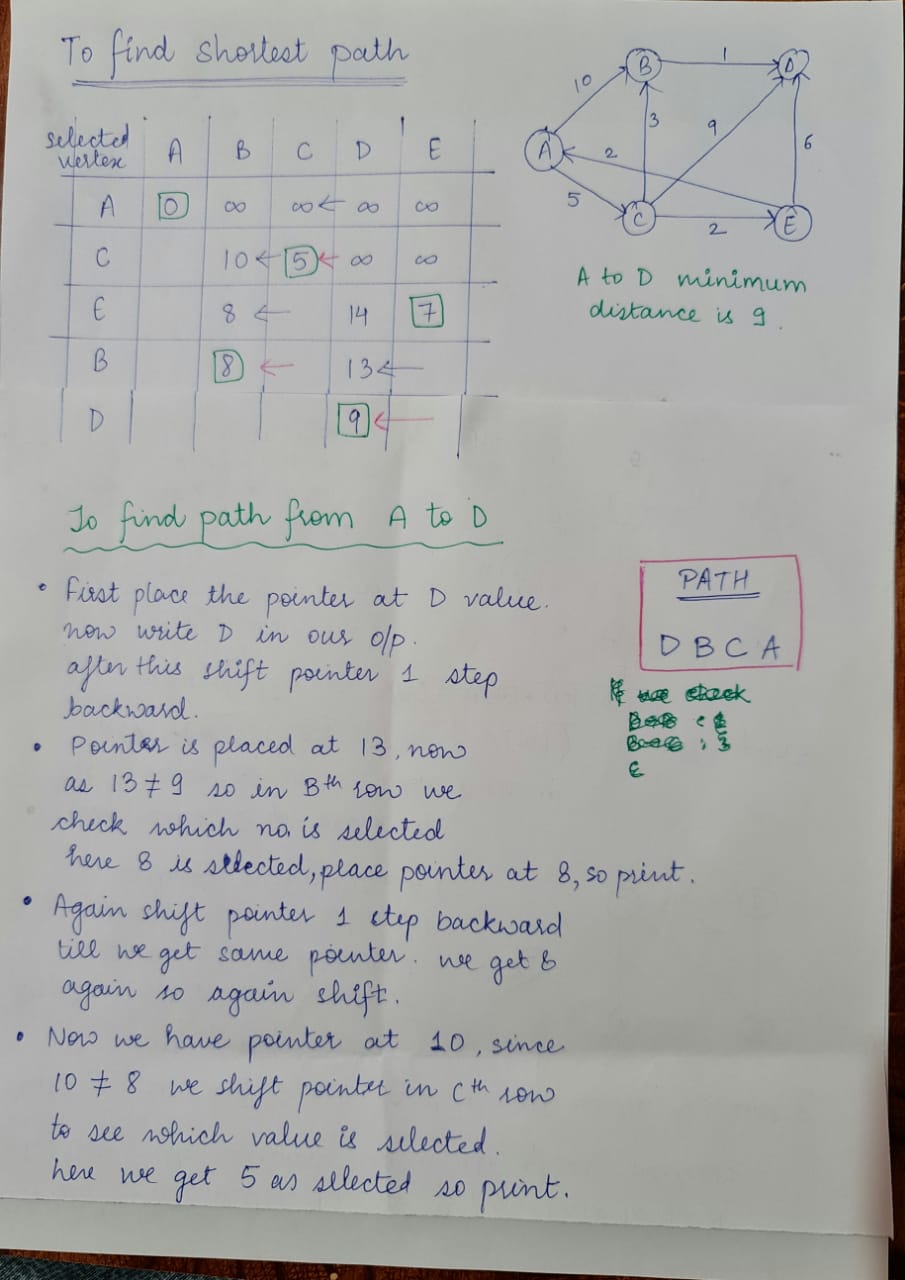 To find shortest path
selected vertex A B C D E
A 0 ∞ ∞ ← ∞ ∞
C 10 ← 5 ← ∞ ∞
E 8 ← 14 7
B 8 ← 13 ←
D 9 ←
10 B 1 D
A 2 3 9 6
5 C 2 E
A to D minimum
distance is 9.
To find path from A to D
• First place the pointer at D value.
now write D in our o/p.
after this shift pointer 1 step
backward.
PATH
D B C A
• Pointer is placed at 13, now
as 13 ≠ 9 so in Bth row we
check which no. is selected
here 8 is selected, place pointer at 8, so print.
• Again shift pointer 1 step backward
till we get same pointer. we get 8
again so again shift.
• Now we have pointer at 10, since
10 ≠ 8 we shift pointer in Cth row
to see which value is selected.
here we get 5 as selected so print.